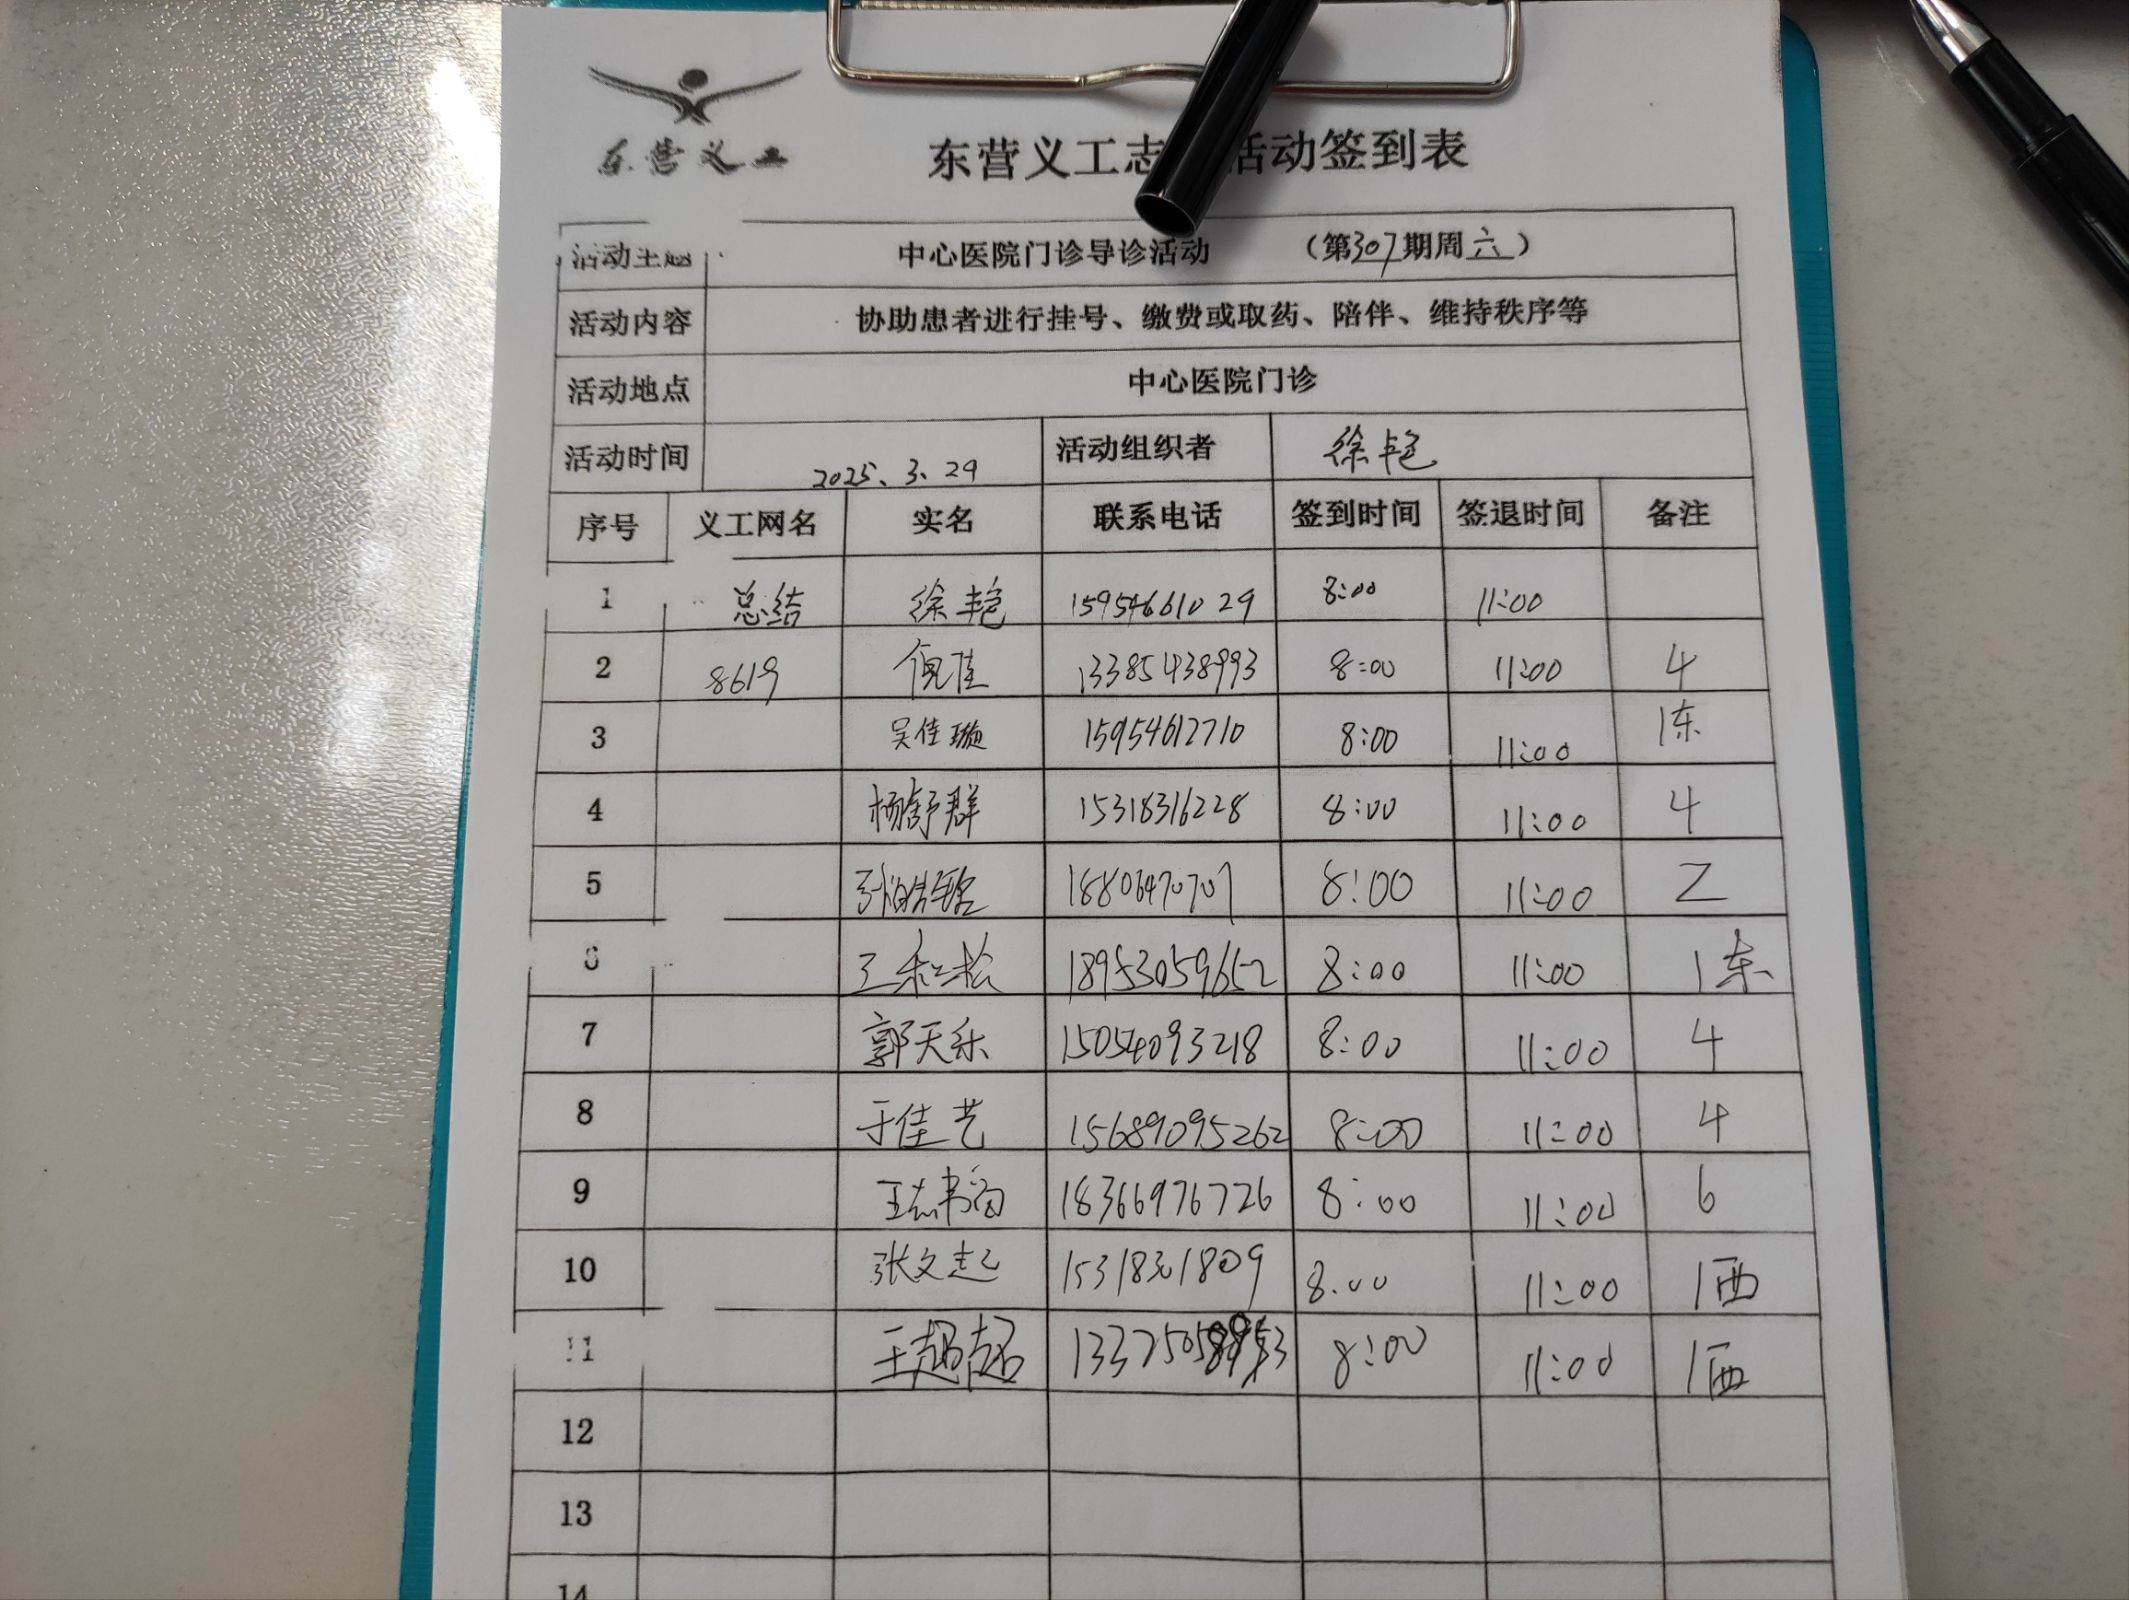 东营义工
东营义工志 活动签到表
活动主题 中心医院门诊导诊活动 （第307期周六）
活动内容 协助患者进行挂号、缴费或取药、陪伴、维持秩序等
活动地点 中心医院门诊
活动时间 2025、3、29 活动组织者 徐艳
序号 义工网名 实名 联系电话 签到时间 签退时间 备注
1 总结 徐艳 15954661029 8:00 11:00
2 8619 倪佳 13385438993 8:00 11:00 4
3 吴佳璇 15954612710 8:00 11:00 1东
4 杨舒群 15318316228 8:00 11:00 4
5 18806470707 8:00 11:00 2
6 18953059652 8:00 11:00 1东
7 郭天乐 15054093218 8:00 11:00 4
8 于佳艺 15689095262 8:00 11:00 4
9 18366976726 8:00 11:00 6
10 张文起 15318301809 8:00 11:00 1西
11 王超超 8:00 11:00 1西
12
13
14